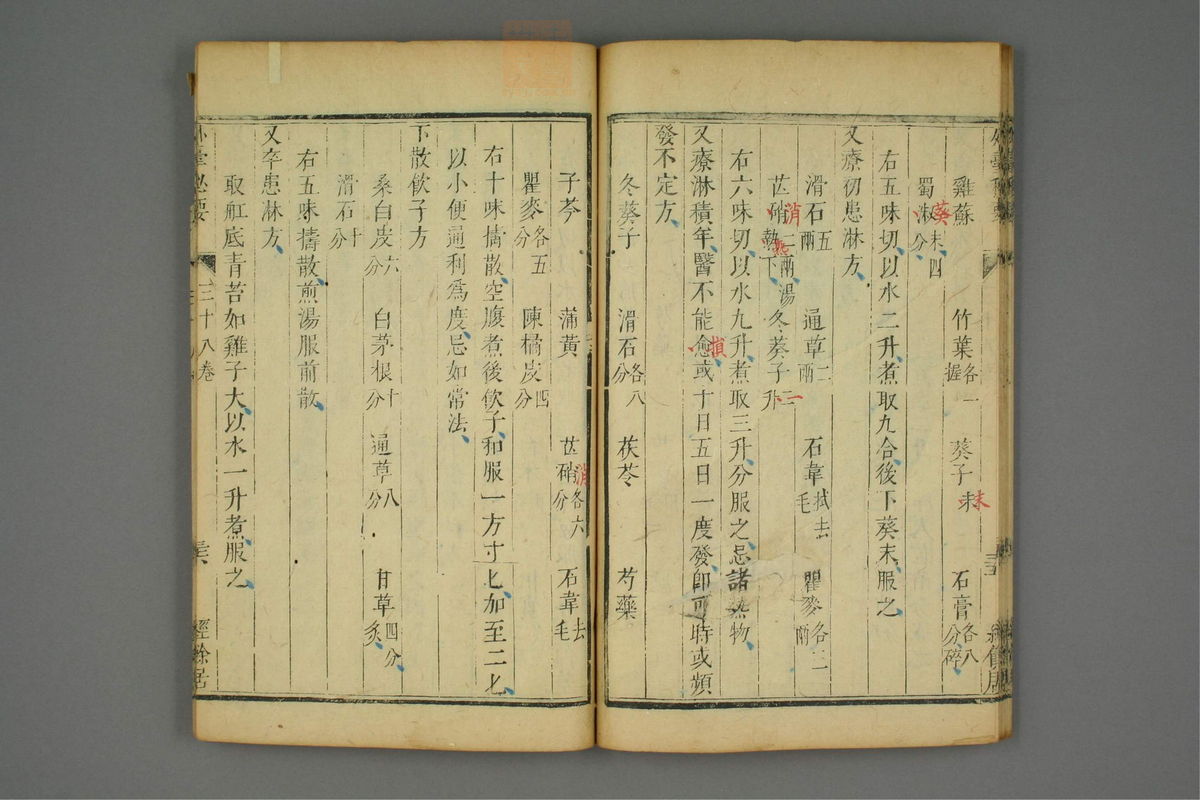 雞蘇 竹葉各一握 葵子末 末 石膏各八分碎
蜀淑末四分 葵
右五味切以水二升煮取九合後下葵末服之
又療初患淋方
滑石五兩 通草二兩 石韋拭去毛 瞿麥各二兩
芒硝二兩湯熱下 消 冬葵子二升 一
右六味切以水九升煮取三升分服之忌諸熱物
又療淋積年醫不能愈或十日五日一度發即可時或頻
發不定方
冬葵子 滑石各八分 茯苓 芍藥
子芩 蒲黃 芒硝各六分 消 石韋去毛
瞿麥各五分 陳橘皮四分
右十味擣散空腹煮後飲子和服一方寸匕加至二匕
以小便通利爲度忌如常法
下散飲子方
桑白皮六分 白茅根十分 通草八分 甘草四分炙
滑石十分
右五味擣散煎湯服前散
又卒患淋方
取舡底青苔如雞子大以水一升煮服之
外臺秘要 三十八卷 三六 經餘居